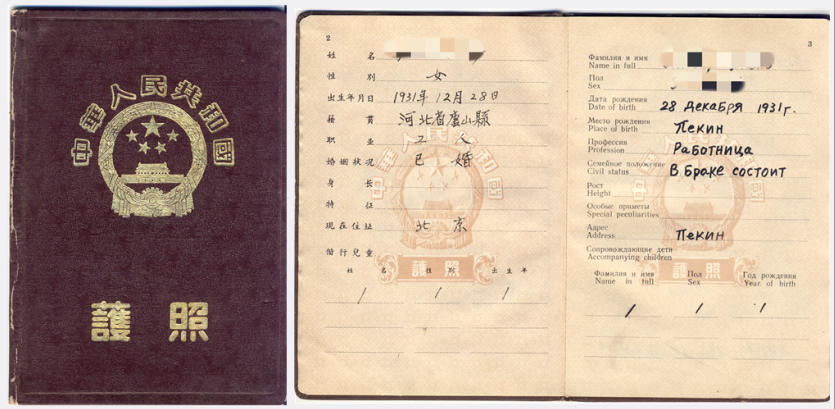 中華人民共和國
護照
2
姓名
性别 女
出生年月日 1931年12月28日
籍貫 河北省盧山縣
职业 工人
婚姻状况 已婚
身長
特征
現在住址 北京
偕行兒童
姓名 性别 出生年
/ / /
中華人民共和國
護照
3
Фамилия и имя
Name in full
Пол
Sex
Дата рождения
Date of birth 28 декабря 1931г.
Место рождения
Place of birth Пекин
Профессия
Profession Работница
Семейное положение
Civil status В браке состоит
Рост
Height
Особые приметы
Special peculiarities
Адрес
Address Пекин
Сопровождающие дети
Accompanying children
Фамилия и имя Пол Год рождения
Name in full Sex Year of birth
/ / /
護照